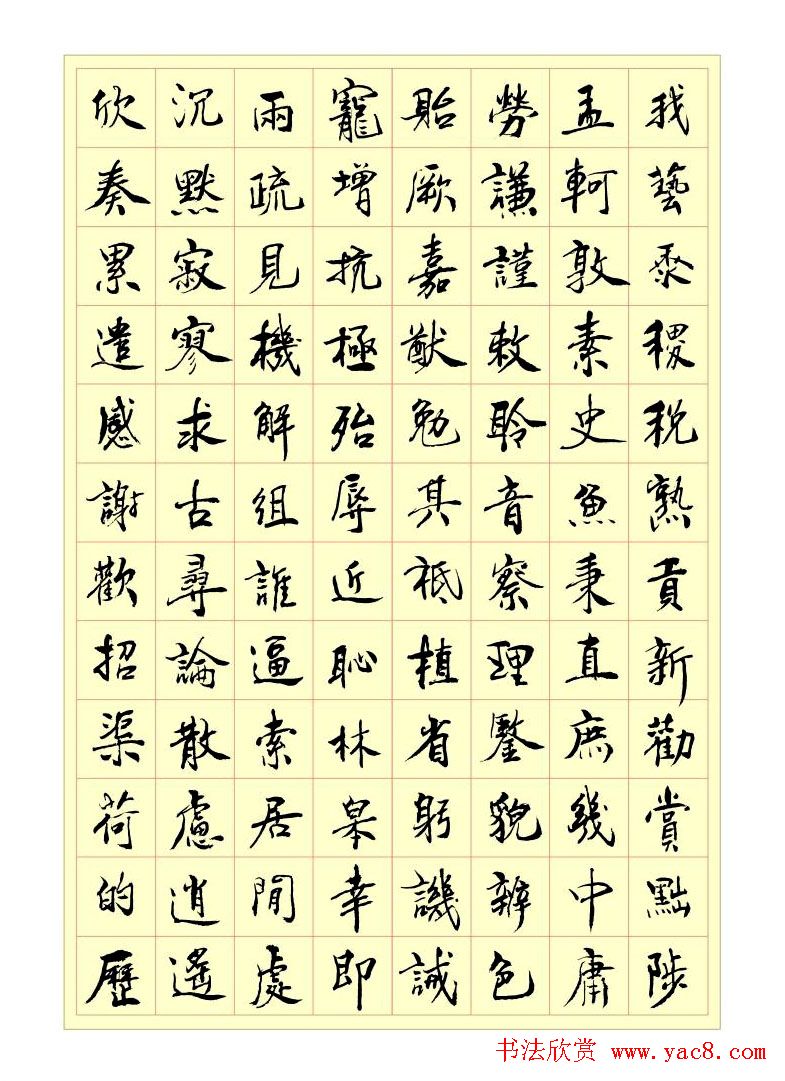 我藝黍稷稅熟貢新勸賞黜陟
孟軻敦素史魚秉直庶幾中庸
勞謙謹敕聆音察理鑒貌辨色
貽厥嘉猷勉其祗植省躬譏誡
寵增抗極殆辱近恥林皋幸即
兩疏見機解組誰逼索居閒處
沉默寂寥求古尋論散慮逍遙
欣奏累遣慼謝歡招渠荷的歷
书法欣赏 www.yac8.com